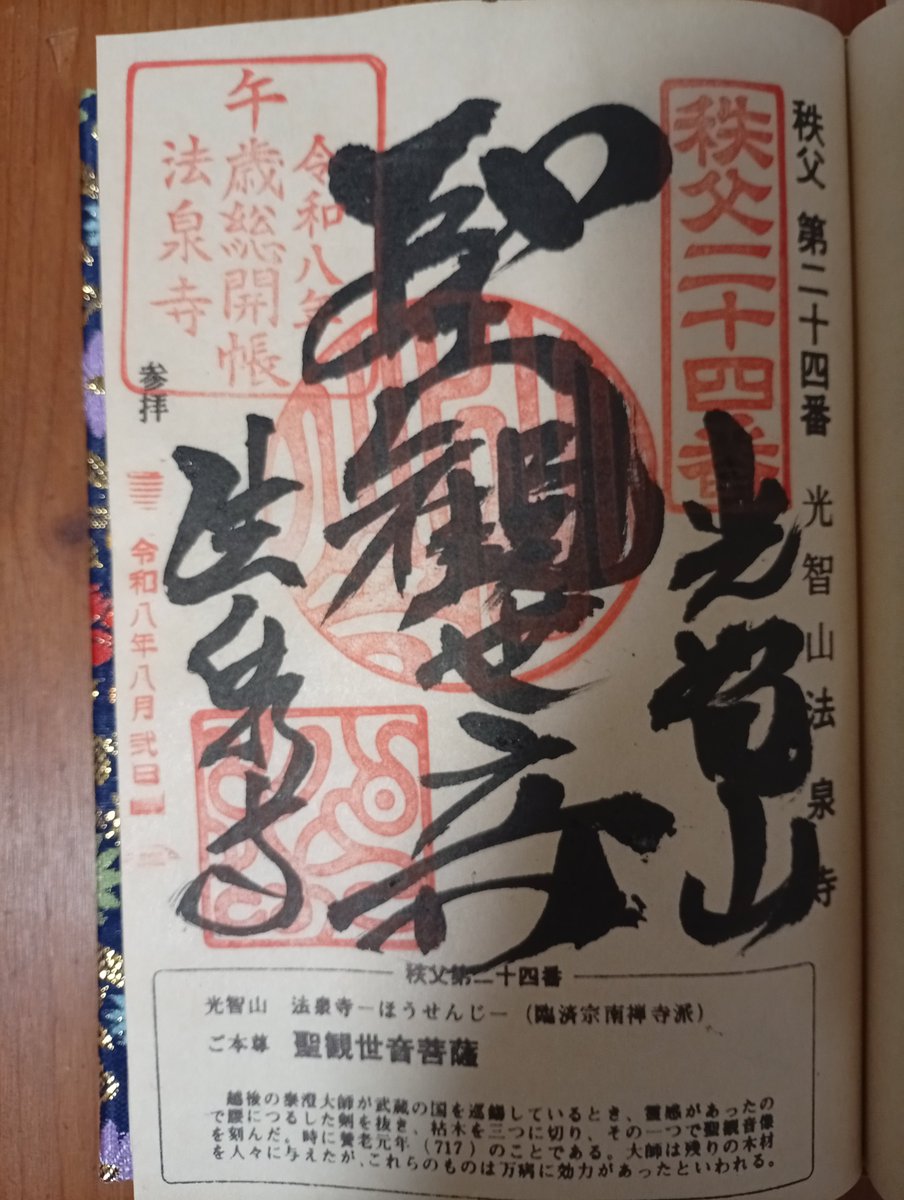 秩父 第二十四番 光智山法泉寺
秩父二十四番
光智山
聖観世音
法泉寺
令和八年
午歳総開帳
法泉寺
参拝
令和八年八月弐日
秩父第二十四番
光智山 法泉寺－ほうせんじ－(臨済宗南禅寺派)
ご本尊 聖観世音菩薩
越後の泰澄大師が武蔵の国を巡錫しているとき、霊感があったの
で腰につるした剣を抜き、枯木を三つに切り、その一つで聖観音像
を刻んだ。時に養老元年(717)のことである。大師は残りの木材
を人々に与えたが、これらのものは万病に効力があったといわれる。